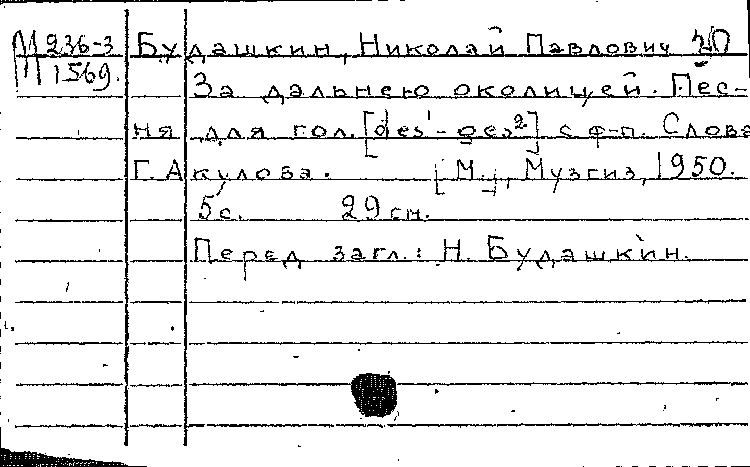 М 236-3 Будашкин, Николай Павлович 20
П 1569. За дальнею околицей. Пес-
ня для гол. [des¹-ges²] с ф-п. Слова
Г. Акулова. [М.], Музгиз, 1950.
5 с. 29 см.
Перед загл.: Н. Будашкин.